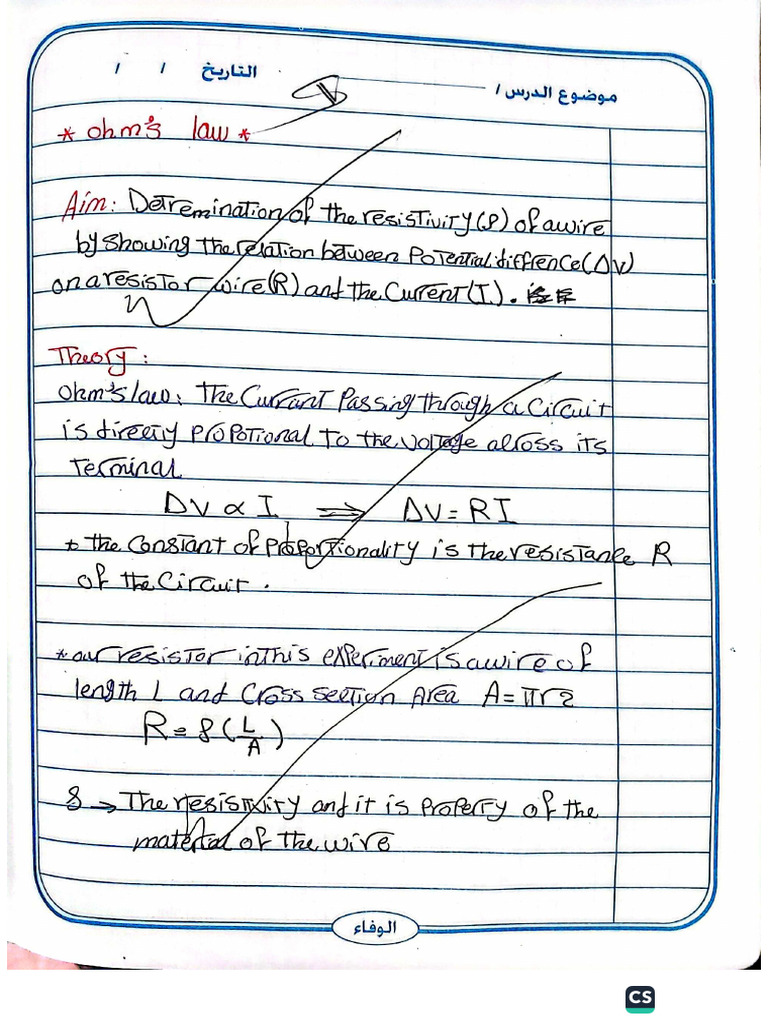 موضوع الدرس / التاريخ / /
* ohm's law *
Aim: Detremination of the resistivity (ρ) of a wire
by showing the relation between Potential diffrence (ΔV)
on a resistor wire (R) and the Current (I).
Theory:
Ohm's law: The Currant Passing through a Circuit
is directy propotional to the voltage across its
Terminal
ΔV ∝ I ⇒ ΔV = RI
* the Constant of proportionality is the resistance R
of the Circuit.
* our resistor in this experiment is a wire of
length L and Cross section Area A = πr2
R = ρ (L/A)
ρ → The resistivity and it is property of the
material of the wire
الوفاء
CS